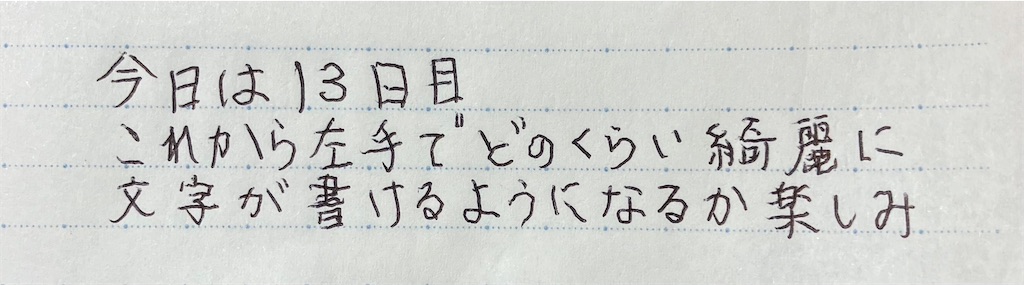 今日は13日目
これから左手でどのくらい綺麗に
文字が書けるようになるか楽しみ